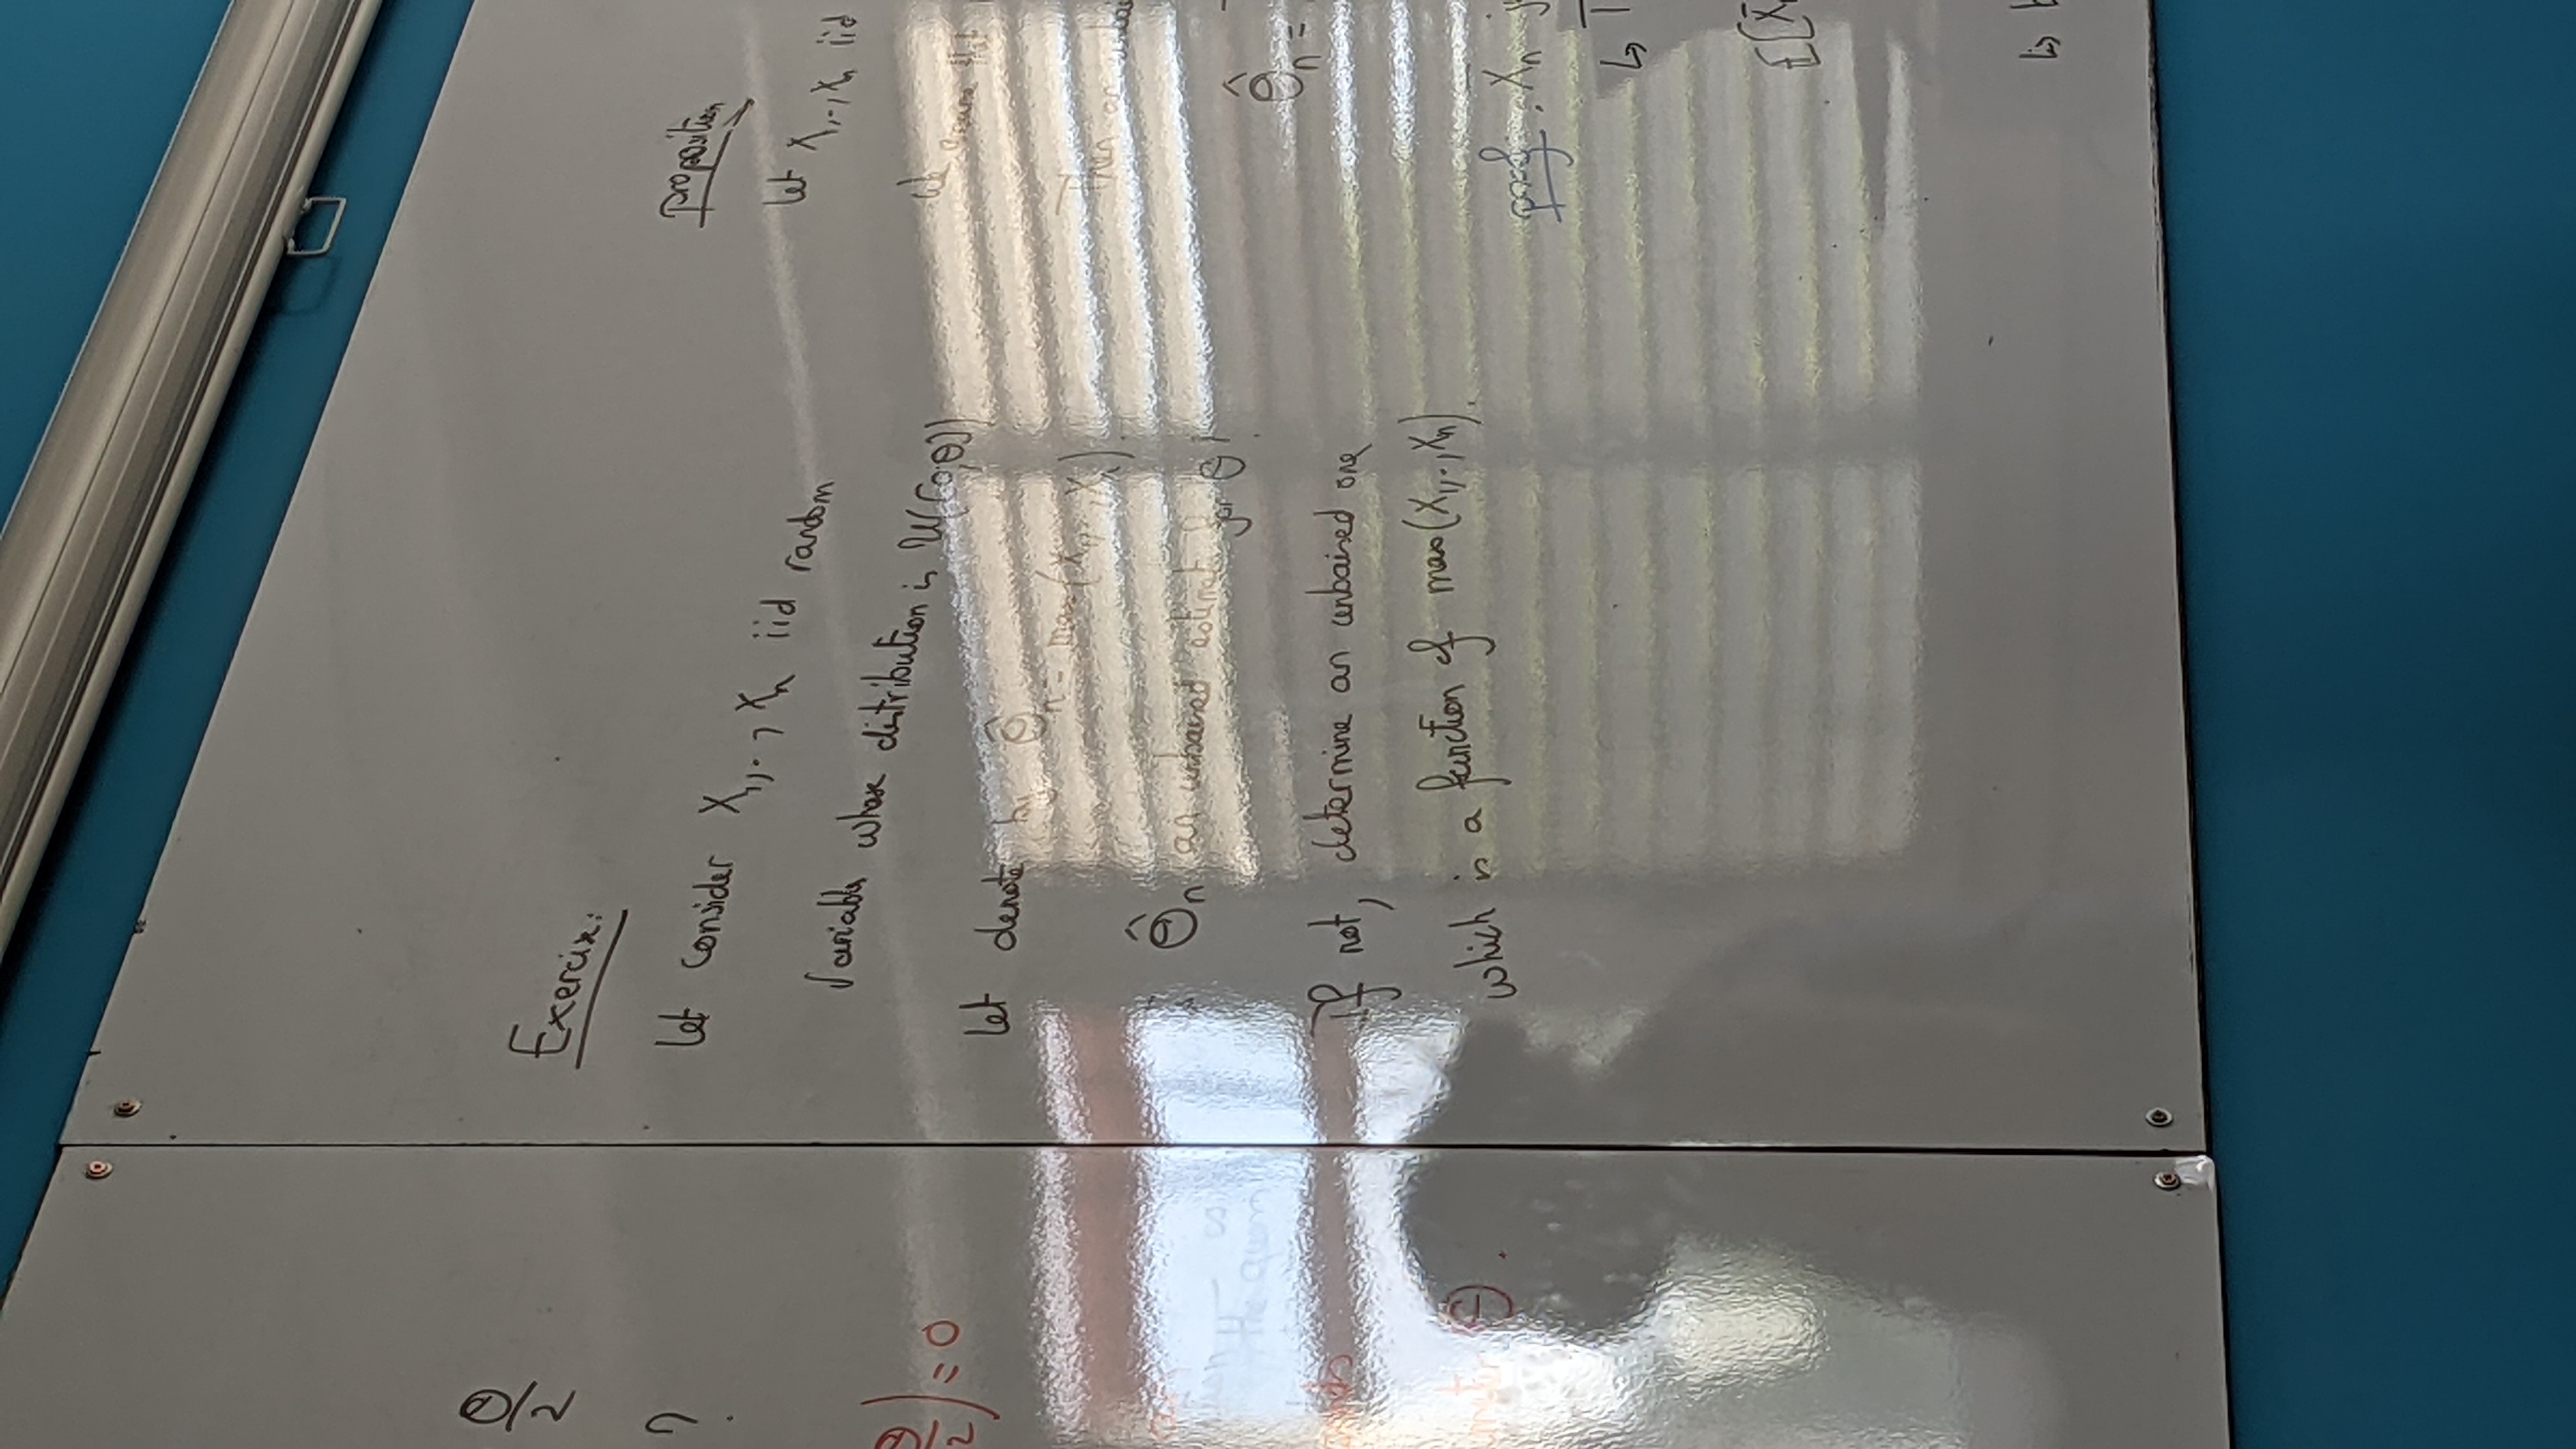 θ/2
?
θ/2) = 0
the quan
θ.
Exercise:
Let consider X₁,..,Xₙ iid random
Variable whose distribution is U([0;θ])
Let denote by θ̂ₙ = max(X₁,..,Xₙ).
θ̂ₙ an unbaised estimate for θ?
If not, determine an unbaised one
which is a function of max(X₁,..,Xₙ).
proposition
Let X₁,..,Xₙ iid
We assume that
Then an
θ̂ₙ =
proof: . X̄ₙ
↳
E[X̄ₙ
↳